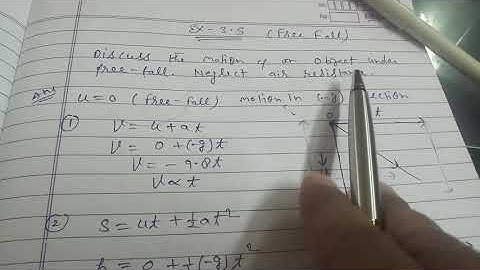 Ex-3.5 (Free Fall)
Discuss the motion of an object under
free-fall. Neglect air resistance.
Ans u = 0 (free-fall) motion in (-y) direction
① V = u + at
0 t
V = 0 + (-g)t
V = - 9.8t
V ∝ t
② S = ut + ½at²
h = 0 + ½(-g)t²